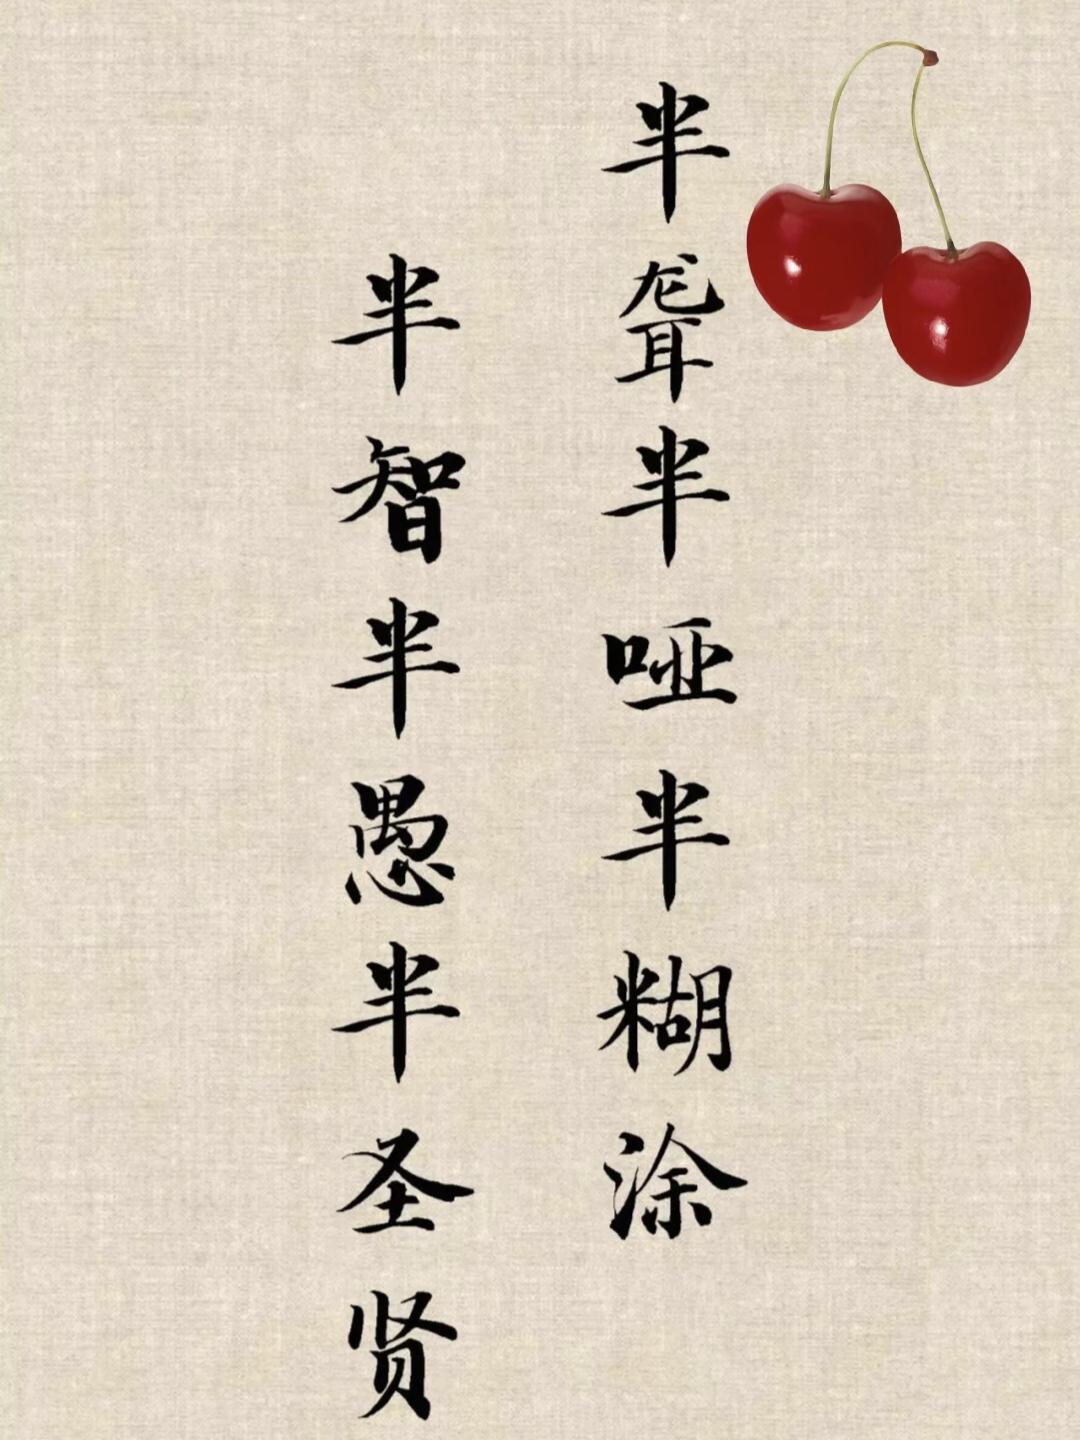 半聋半哑半糊涂
半智半愚半圣贤